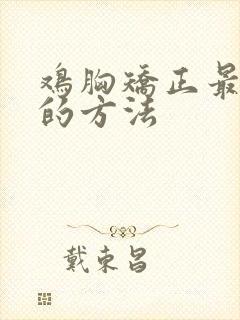 鸡胸矫正最
的方法
戴东昌